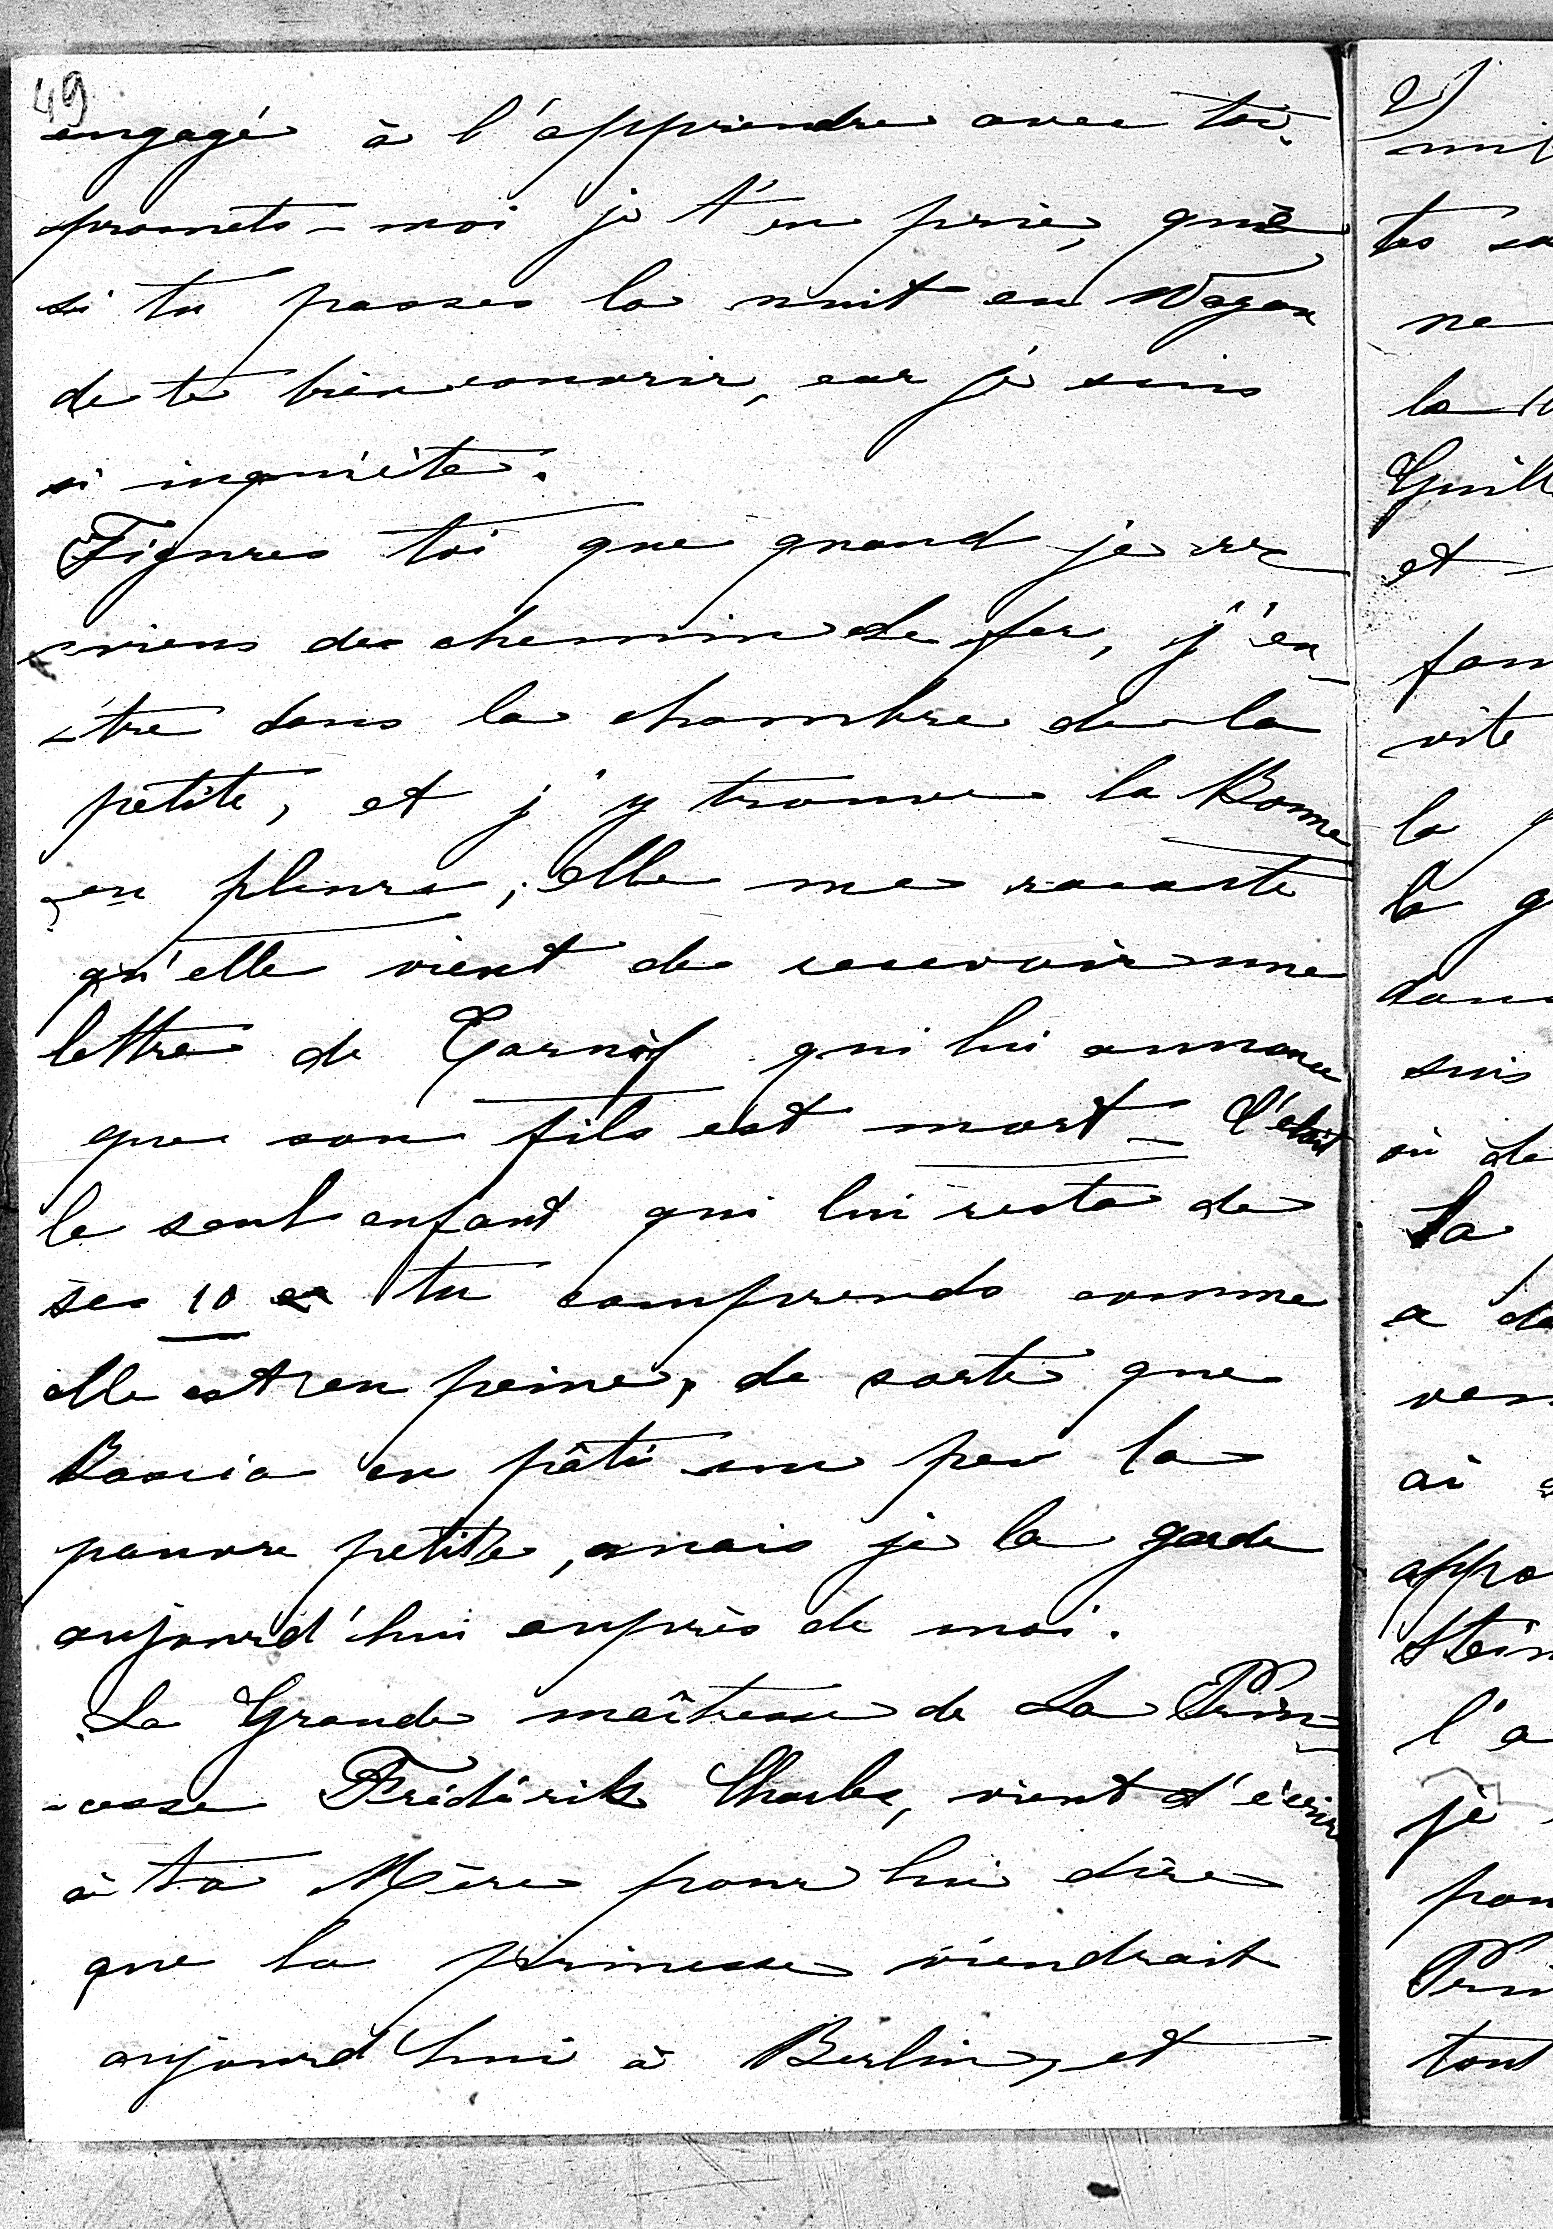 49
engagé à l'apprendre avec toi.
promets-moi je t'en prie, que
si tu passes la nuit en Wagon
de te bien couvrir, car je suis
si inquiète.
Figures toi que quand je re
viens du chemin de fer, j'en-
-tre dans la chambre de la
petite, et j'y trouve la Bonne
en pleurs; elle me raconte
qu'elle vient de recevoir une
lettre de qui lui annonce
que son fils est mort - C'était
le seul enfant qui lui resta de
ses 10 et tu comprends comme
elle est en peine, de sorte que
en pâti un peu la
pauvre petite, mais je la garde
aujourd'hui auprès de moi.
La Grande maîtresse de La Prin-
-cesse Frédérik Charles, vient d'écrire
à ta Mère pour lui dire
que la princesse viendrait
aujourd'hui à Berlin, et
2)
tes
ne
la
et
vite
la
la
suis
où de
la
a
ai
l'a
je
tout